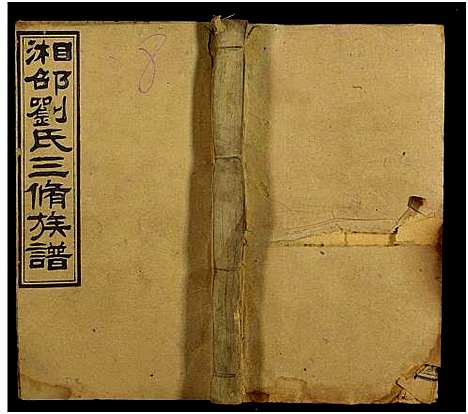 湘邵劉氏三脩族譜